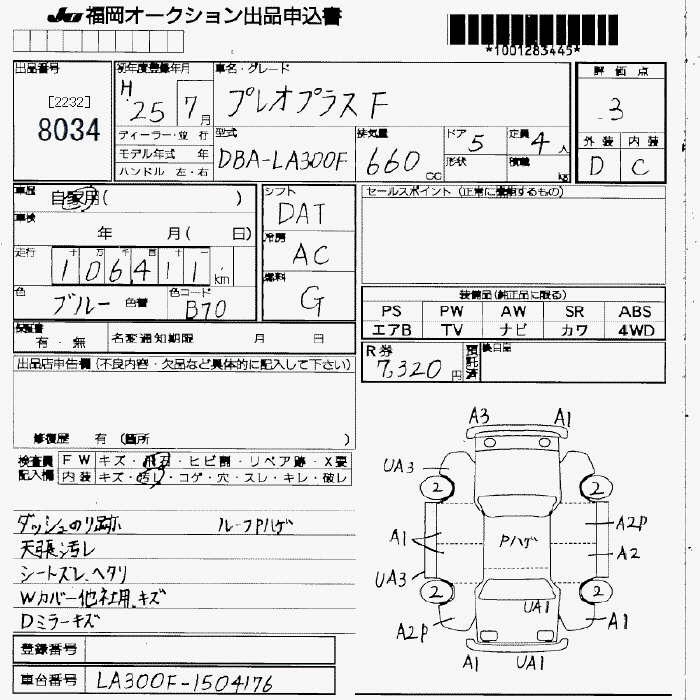 JU 福岡オークション出品申込書
*1001283445*
出品番号
[2232]
8034
初年度登録年月
H 25 7月
車名・グレード
プレオプラス F
評価点
3
外装 内装
D C
ディーラー・並行
モデル年式 年
ハンドル 左・右
型式
DBA-LA300F
排気量
660 CC
ドア 5
形状
定員 4人
積載 kg
車歴 自家用( )
車検
年 月( 日)
走行
十 万 千 百 十
106411 km
色 ブルー 色替
色コード B70
シフト
DAT
冷房
AC
燃料
G
セールスポイント (正常に機能するもの)
装備品(純正品に限る)
PS PW AW SR ABS
エアB TV ナビ カワ 4WD
保証書
有・無
名変通知期限 月 日
R券
7,320円
預託済
出品店申告欄 (不良内容・欠品など具体的に記入して下さい)
修復歴 有 (箇所 )
検査員記入欄
FW キズ・飛石・ヒビ割・リペア跡・X要
内装 キズ・汚レ・コゲ・穴・スレ・キレ・破レ
ダッシュのリ跡 ルーフPハゲ
天張汚レ
シートズレ、ヘタリ
Wカバー他社用、キズ
Dミラーキズ
登録番号
車台番号 LA300F-1504176
A3 A1
UA3
2 2
A1 Pハゲ A2P
A2
UA3
2 2
UA1
A2P A1
A1 UA1